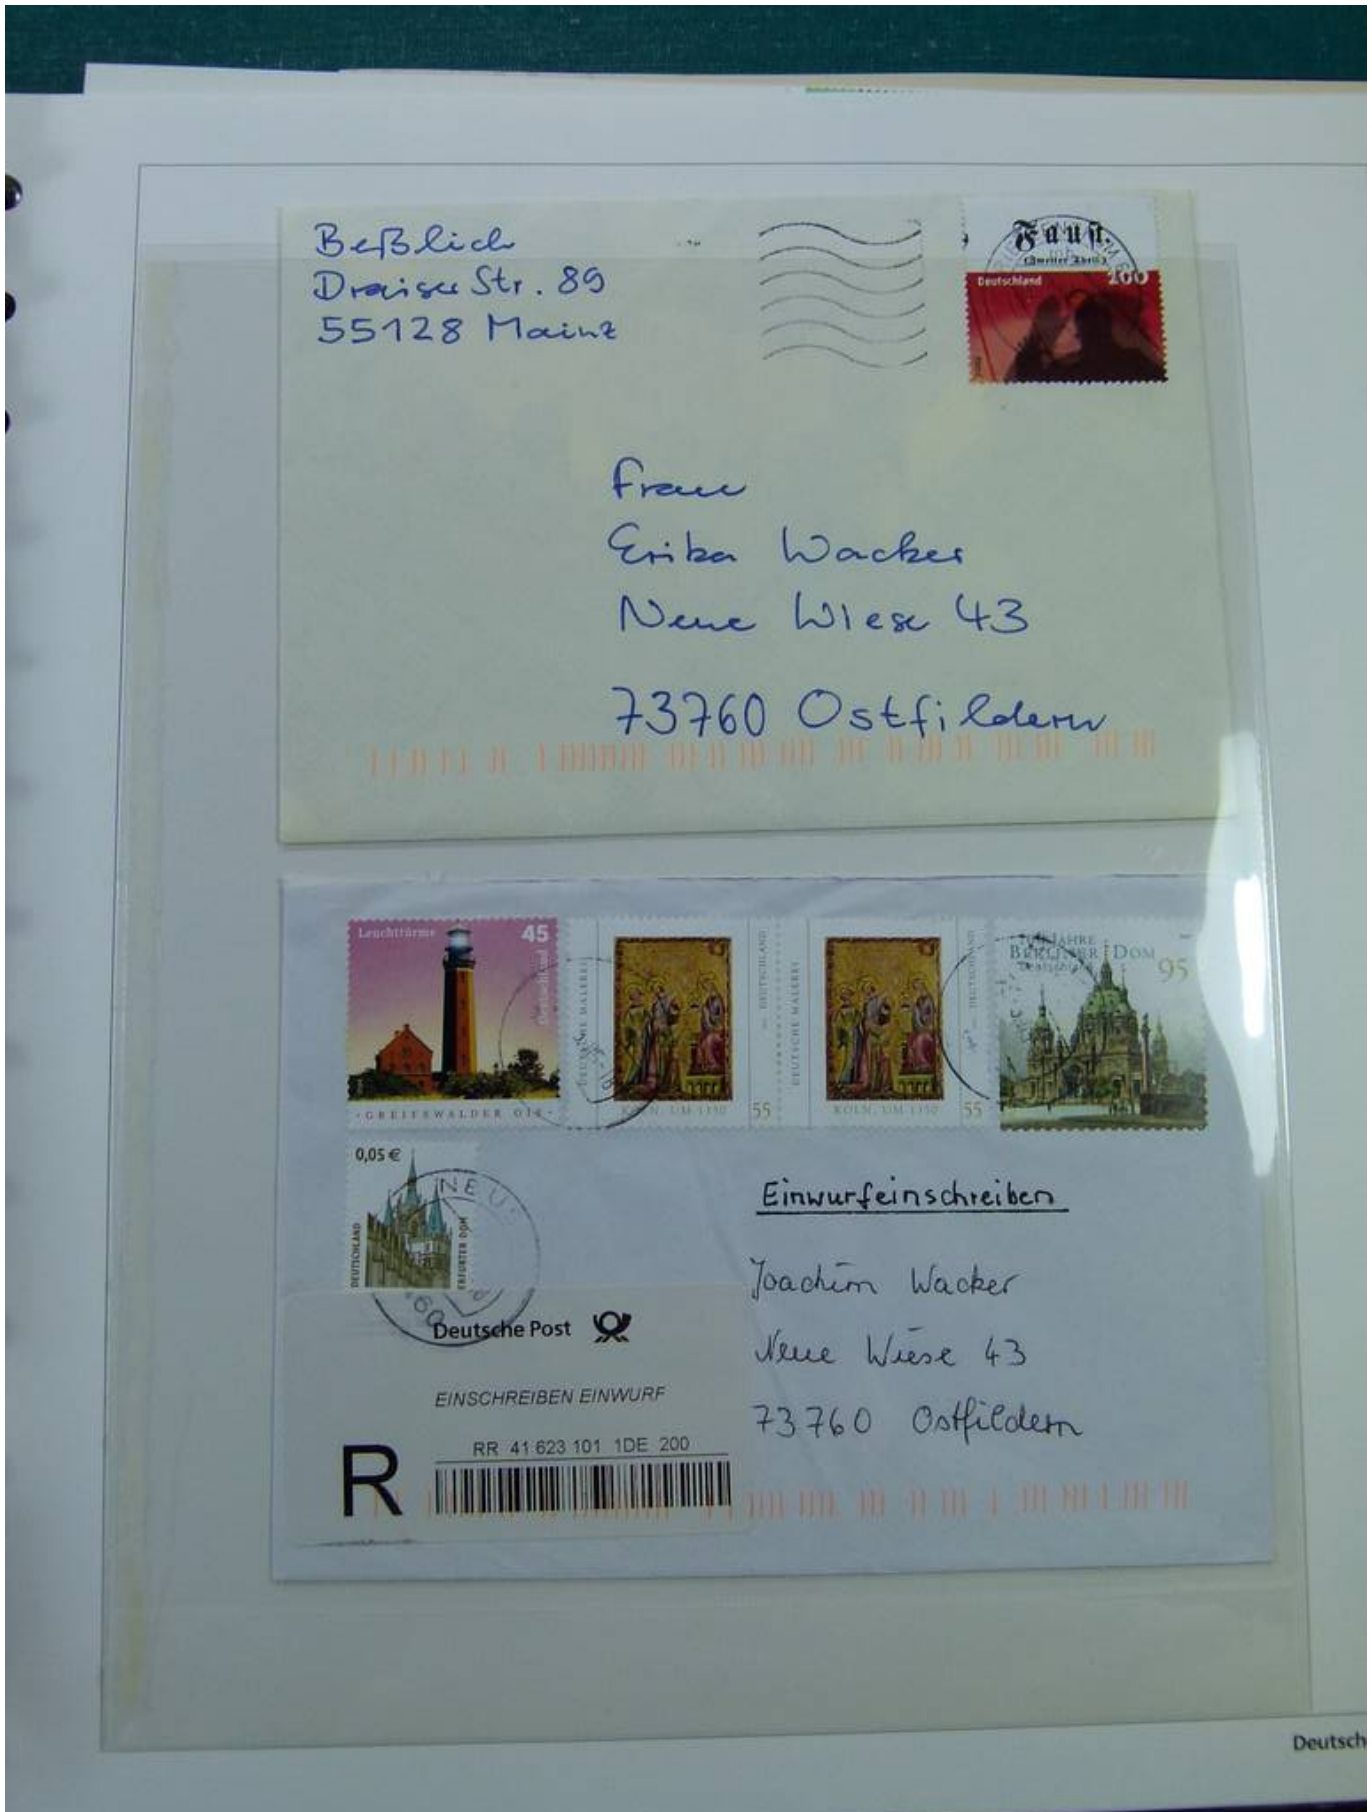 Beßlich
Draiser Str. 89
55128 Mainz
Faust.
(Zweiter Theil)
Deutschland
160
Frau
Erika Wacker
Neue Wiese 43
73760 Ostfildern
Leuchttürme 45
Deutschland
GREIFSWALDER OIE
DEUTSCHE MALEREI
DEUTSCHLAND
KÖLN, UM 1350
55
DEUTSCHE MALEREI
DEUTSCHLAND
KÖLN, UM 1350
55
JAHRE
BERLINER DOM
Deutschland
95
0,05 €
DEUTSCHLAND
ERFURTER DOM
NEU
Einwurfeinschreiben
Joachim Wacker
Neue Wiese 43
73760 Ostfildern
Deutsche Post
EINSCHREIBEN EINWURF
RR 41 623 101 1DE 200
R
Deutsch